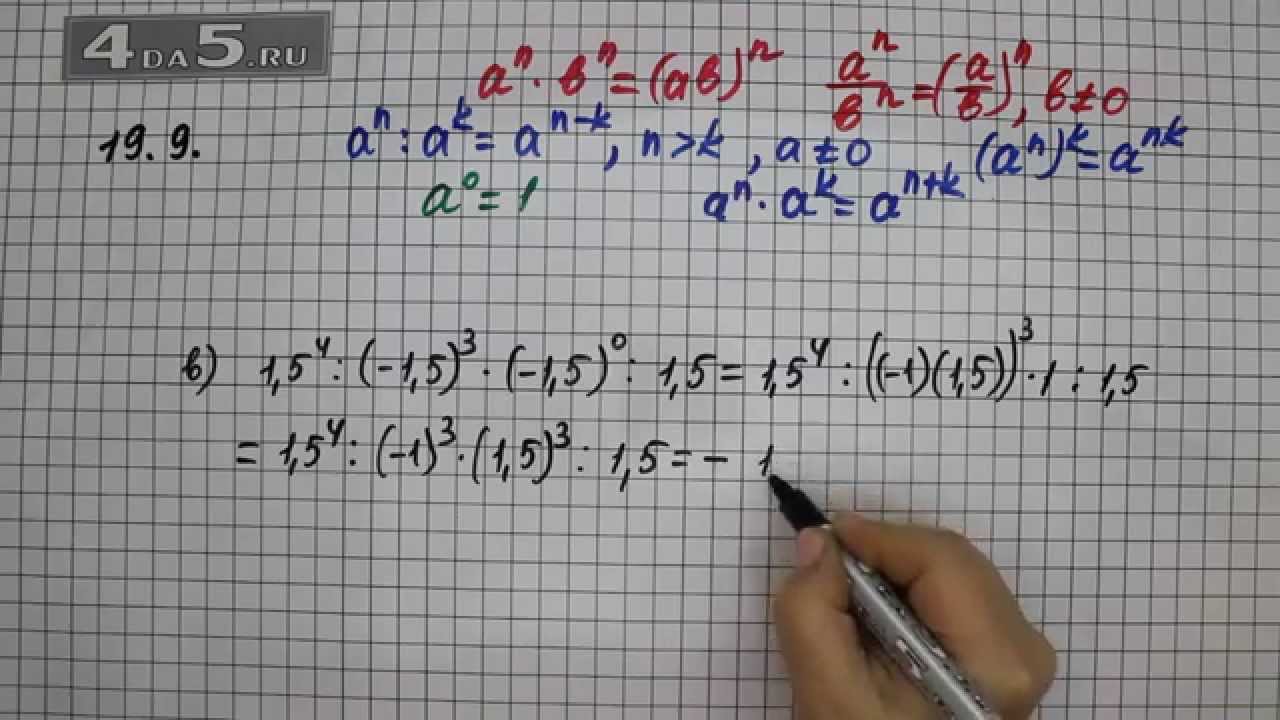 4DA5.RU
aⁿ · bⁿ = (ab)ⁿ   aⁿ/bⁿ = (a/b)ⁿ, b ≠ 0
19.9.   aⁿ : aᵏ = aⁿ⁻ᵏ, n > k, a ≠ 0   (aⁿ)ᵏ = aⁿᵏ
a⁰ = 1   aⁿ · aᵏ = aⁿ⁺ᵏ
в) 1,5⁴ : (-1,5)³ · (-1,5)⁰ : 1,5 = 1,5⁴ : ((-1)(1,5))³ · 1 : 1,5
= 1,5⁴ : (-1)³ · (1,5)³ : 1,5 = - 1